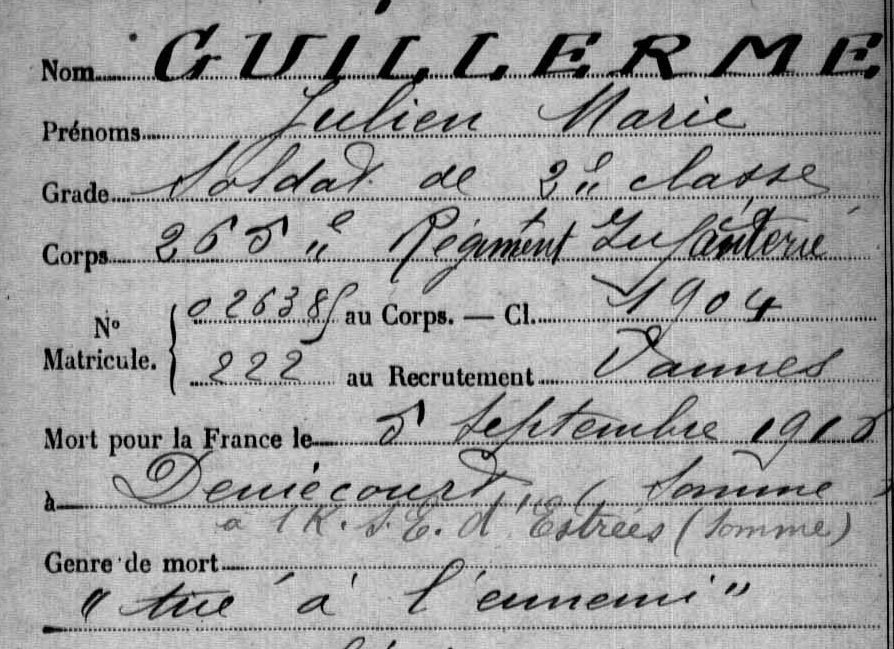 Nom GUILLERME
Prénoms Julien Marie
Grade Soldat de 2e classe
Corps 265e Régiment Infanterie
Nº 026385 au Corps. — Cl. 1904
Matricule. 222 au Recrutement Vannes
Mort pour la France le 5 Septembre 1916
à Deniécourt (Somme)
à 1 K. S. E. d'Estrées (Somme)
Genre de mort
"tué à l'ennemi"